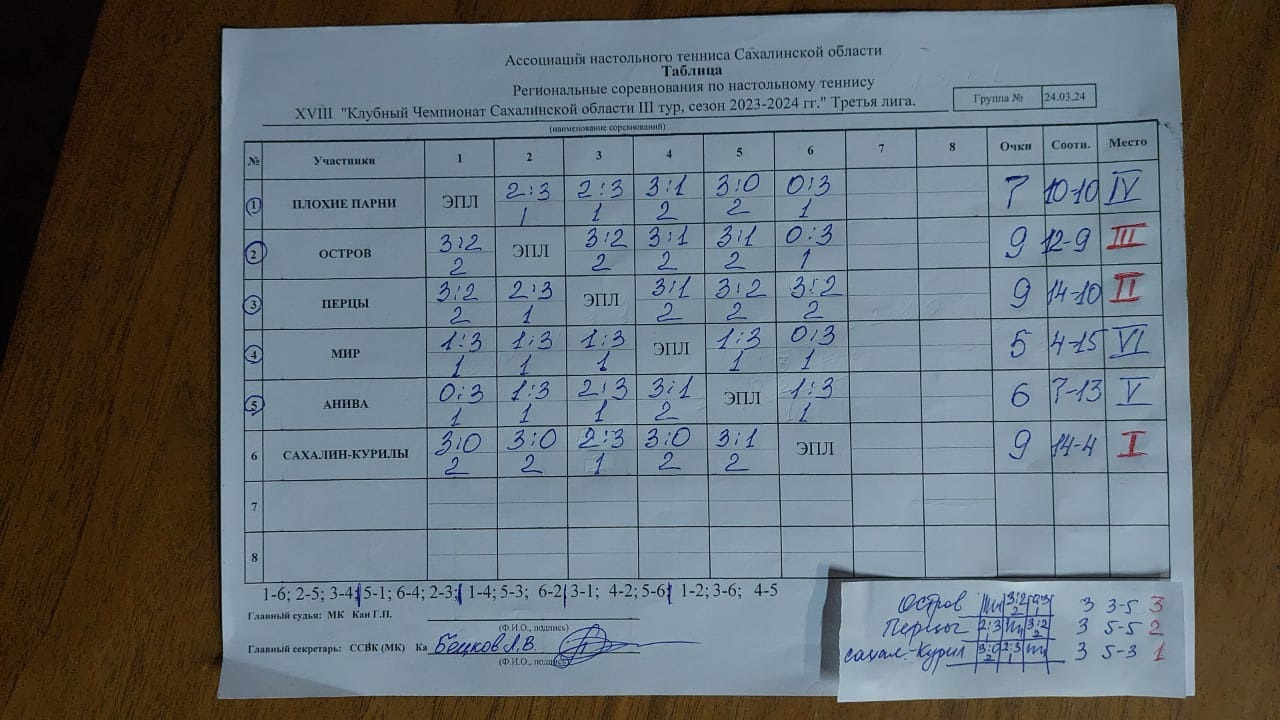 Ассоциация настольного тенниса Сахалинской области
Таблица
Региональные соревнования по настольному теннису
XVIII "Клубный Чемпионат Сахалинской области III тур, сезон 2023-2024 гг." Третья лига.
Группа № 24.03.24
(наименование соревнований)
№ Участники 1 2 3 4 5 6 7 8 Очки Соотн. Место
1 ПЛОХИЕ ПАРНИ ЭПЛ 2:3 2:3 3:1 3:0 0:3 7 10-10 IV
1 1 2 2 1
2 ОСТРОВ 3:2 ЭПЛ 3:2 3:1 3:1 0:3 9 12-9 III
2 2 2 2 1
3 ПЕРЦЫ 3:2 2:3 ЭПЛ 3:1 3:2 3:2 9 14-10 II
2 1 2 2 2
4 МИР 1:3 1:3 1:3 ЭПЛ 1:3 0:3 5 4-15 VI
1 1 1 1 1
5 АНИВА 0:3 1:3 2:3 3:1 ЭПЛ 1:3 6 7-13 V
1 1 1 2 1
6 САХАЛИН-КУРИЛЫ 3:0 3:0 2:3 3:0 3:1 ЭПЛ 9 14-4 I
2 2 1 2 2
7
8
1-6; 2-5; 3-4; 5-1; 6-4; 2-3; 1-4; 5-3; 6-2; 3-1; 4-2; 5-6; 1-2; 3-6; 4-5
Главный судья: МК Кан Г.П.
(Ф.И.О., подпись)
Главный секретарь: ССВК (МК) Ка
(Ф.И.О., подпись)
Остров 3:2 0:3 3 3-5 3
2 1
Перцы 2:3 3:2 3 5-5 2
1 2
сахал. Курил 3:0 2:3 3 5-3 1
2 1